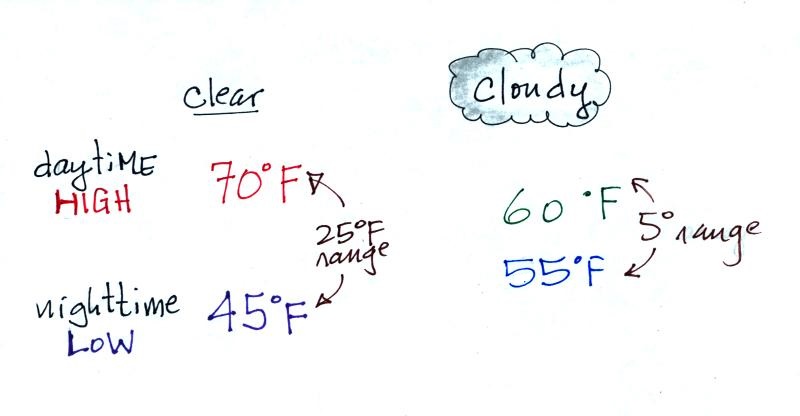 clear
Cloudy
daytiME
HIGH
70°F
25°F
range
60°F
5° range
55°F
nighttime
LOW
45°F